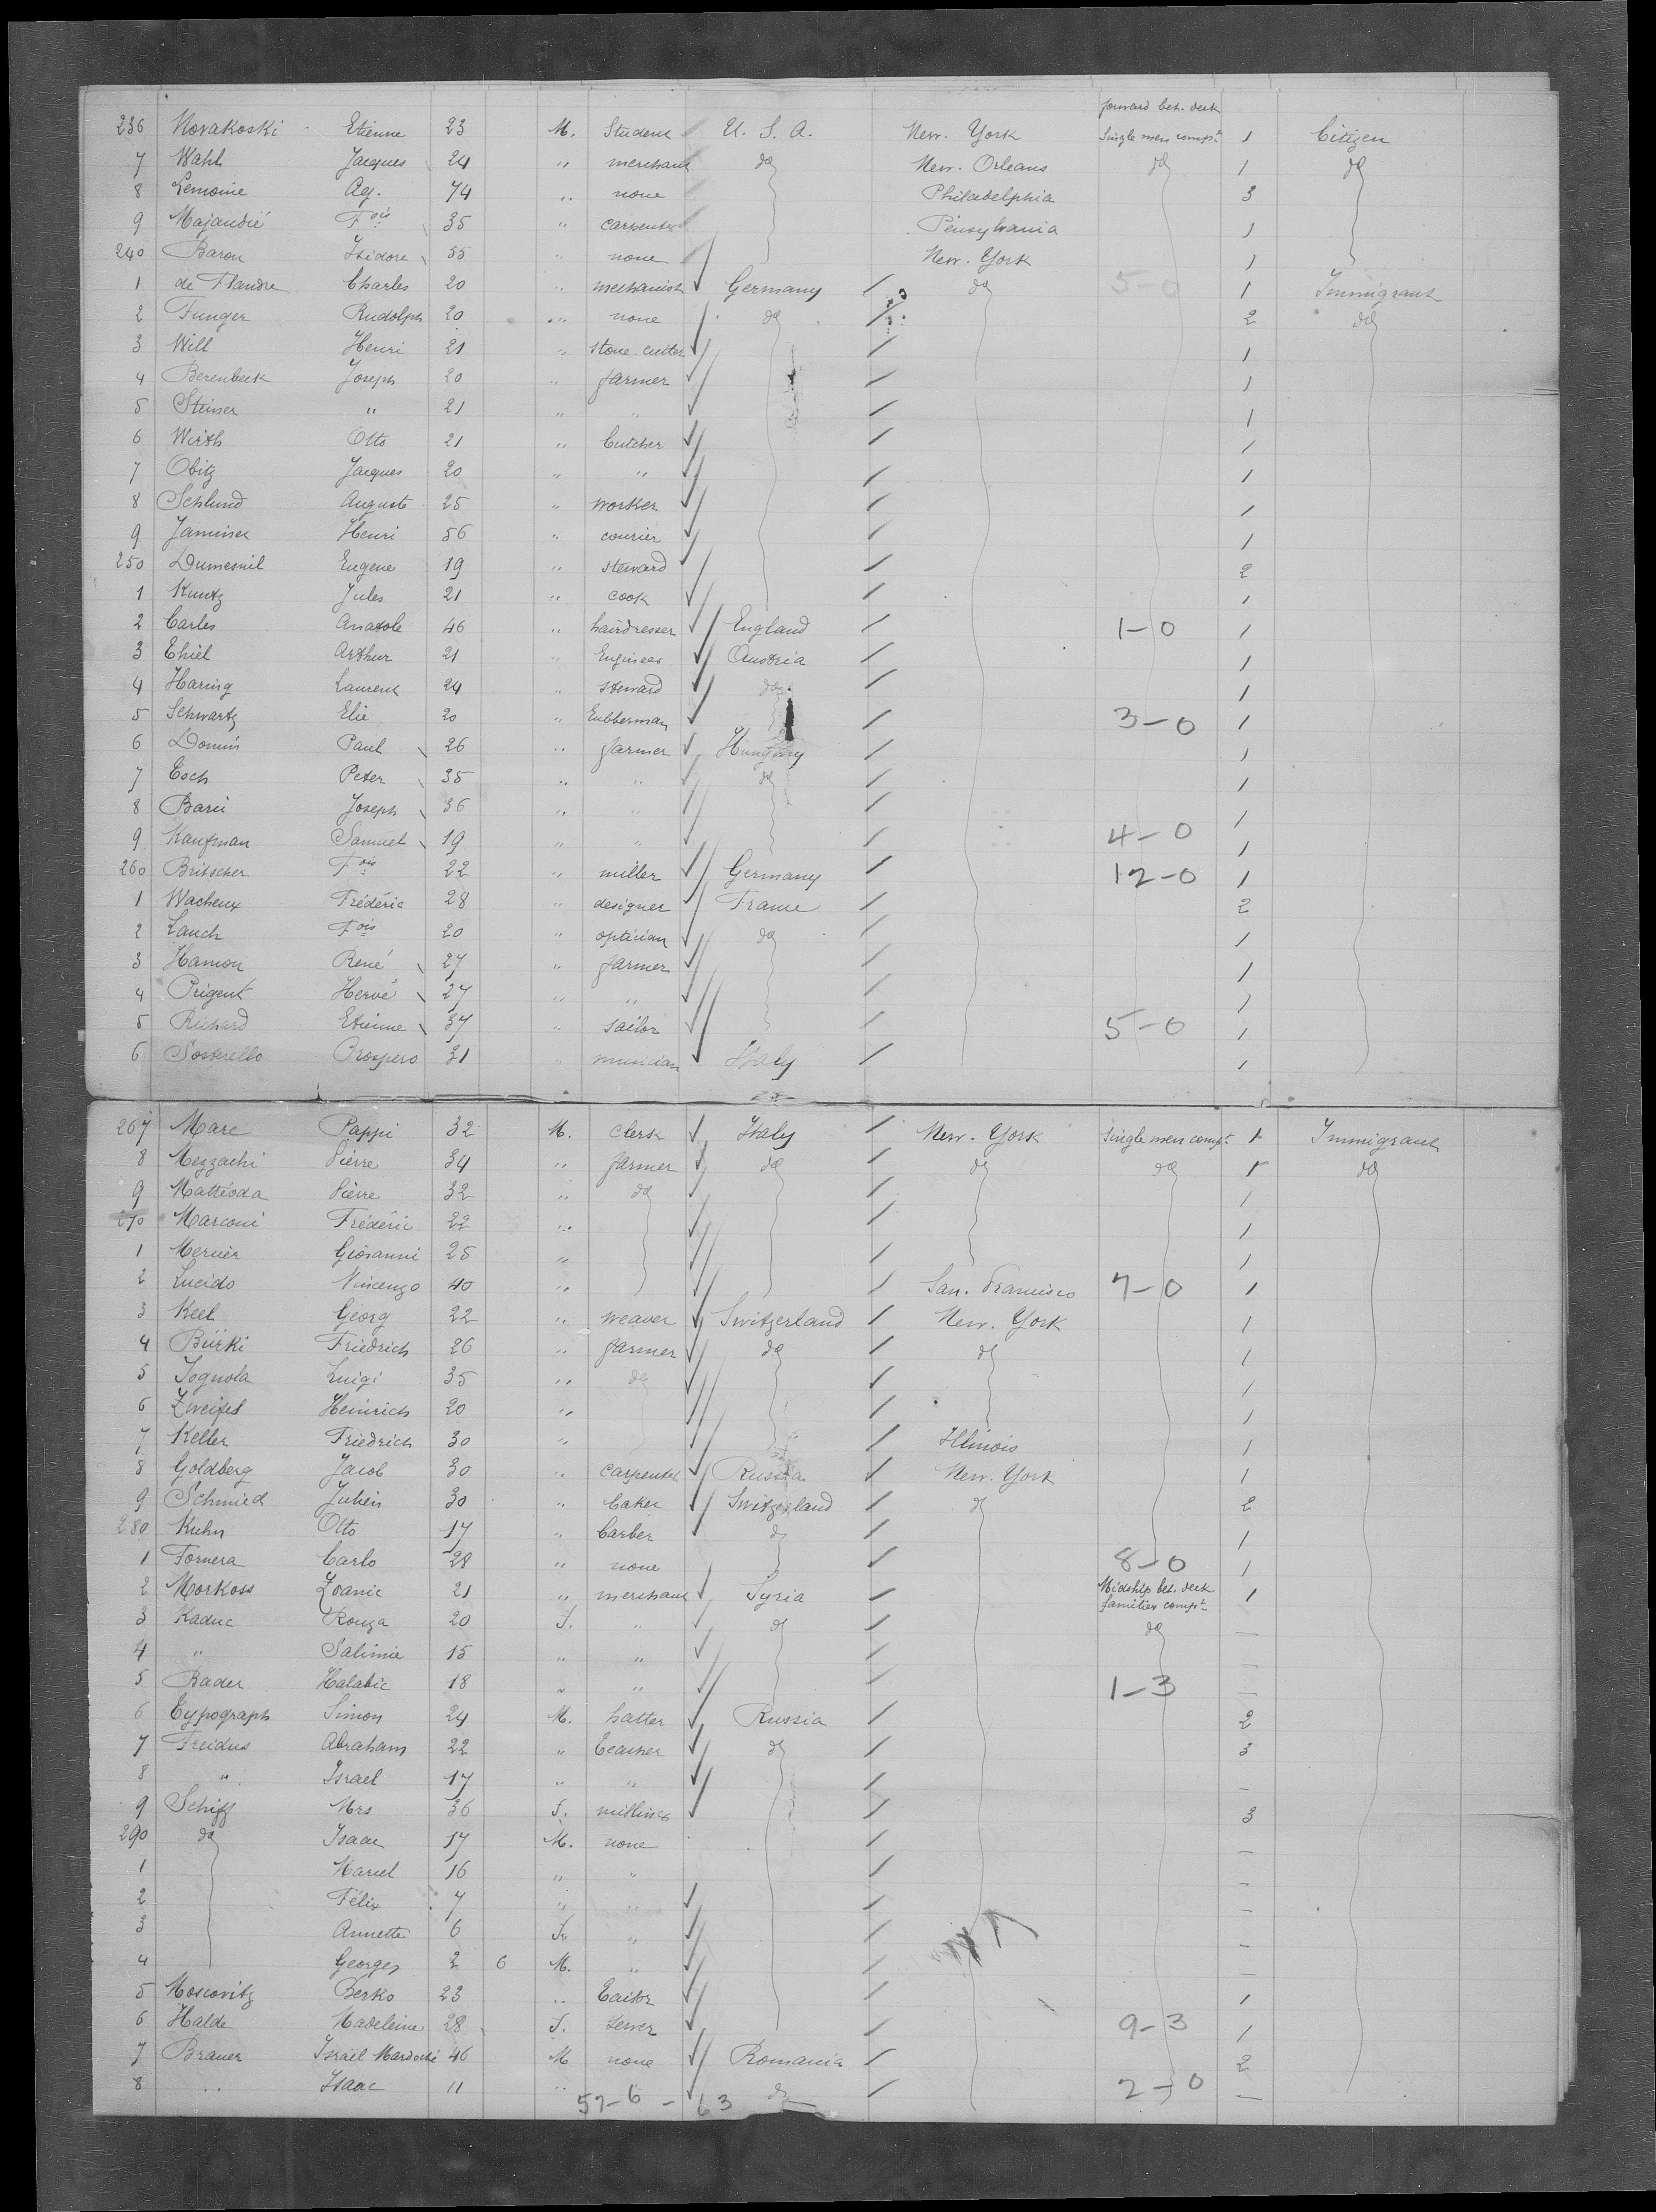 forward bet. deck
236 Novakoski Etienne 23 M. Student U. S. A. New. York Single men compt. 1 Citizen
7 Wahl Jacques 24 " merchant do New. Orleans do 1 do
8 Lemoine Ag. 74 " none Philadelphia 3
9 Majaudié Fois 35 " carpenter Pensylvania 1
240 Baron Isidore 55 " none New. York 1
1 de Flandre Charles 20 " mechanist Germany do 5-0 1 Immigrant
2 Funger Rudolph 20 " none do 2 do
3 Will Henri 21 " stone. cutter 1
4 Berenbeck Joseph 20 " farmer 1
5 Steiner " 21 " " 1
6 Wirth Otto 21 " butcher 1
7 Obitz Jacques 20 " " 1
8 Schlund Auguste 25 " worker 1
9 Henri 56 " courier 1
250 Dumesnil Eugene 19 " steward 2
1 Kuntz Jules 21 " cook 1
2 Carles Anatole 46 " hairdresser England 1-0 1
3 Thiel Arthur 21 " Engineer Austria 1
4 Haring Laurent 24 " steward do 1
5 Schwartz Elie 20 " 3-0 1
6 Paul 26 " farmer Hungary 1
7 Esch Peter 35 " " do 1
8 Joseph 36 " " 1
9 Kaufman Samuel 19 " " 4-0 1
260 Britscher Fois 22 " miller Germany 12-0 1
1 Wacheux Frédéric 28 " designer France 2
2 Lauch Fois 20 " optician do 1
3 Hamon René 27 " farmer 1
4 Prigent Hervé 27 " " 1
5 Richard Etienne 37 " sailor 5-0 1
6 Prospero 31 " musician Italy 1
267 Marc Pappi 32 M. clerk Italy New. York Single men compt. 1 Immigrant
8 Mezzachi Pierre 34 " farmer do do do 1 do
9 Mattéoda Pierre 32 " do 1
270 Marconi Frédéric 22 " 1
1 Mernier Giovanni 25 " 1
2 Lucido Vincenzo 40 " San. Francisco 7-0 1
3 Keel Georg 22 " weaver Switzerland New. York 1
4 Bürki Friedrich 26 " farmer do do 1
5 Tognola Luigi 35 " do 1
6 Zweifel Heinrich 20 " 1
7 Keller Friedrich 30 " Illinois 1
8 Goldberg Jacob 30 " carpenter Russia New. York 1
9 Schmied Julien 30 " baker Switzerland do 2
280 Kuhn Otto 17 " barber do 1
1 Fornera Carlo 28 " none 8-0 1
2 Morkoss Zoanie 21 " merchant Syria Midship bet. deck families compt. 1
3 Kaduc Rouza 20 F. " do do —
4 " Salimie 15 " " —
5 Bader Halabic 18 " " 1-3 —
6 Typograph Simon 24 M. hatter Russia 2
7 Freidus Abraham 22 " Teacher do 3
8 " Israel 17 " " —
9 Schiff Mrs 36 F. milliner 3
290 do Isaac 17 M. none —
1 Marcel 16 " " —
2 Félix 7 " " —
3 Annette 6 F. " —
4 Georges 2 6 M. " —
5 Moscovitz Berko 23 " Tailor 1
6 Halde Madeleine 28 F. sewer 9-3 1
7 Brauer Israël Mardoché 46 M none Romania 2
8 " Isaac 11 " do 2-0 —
57-6 - 63